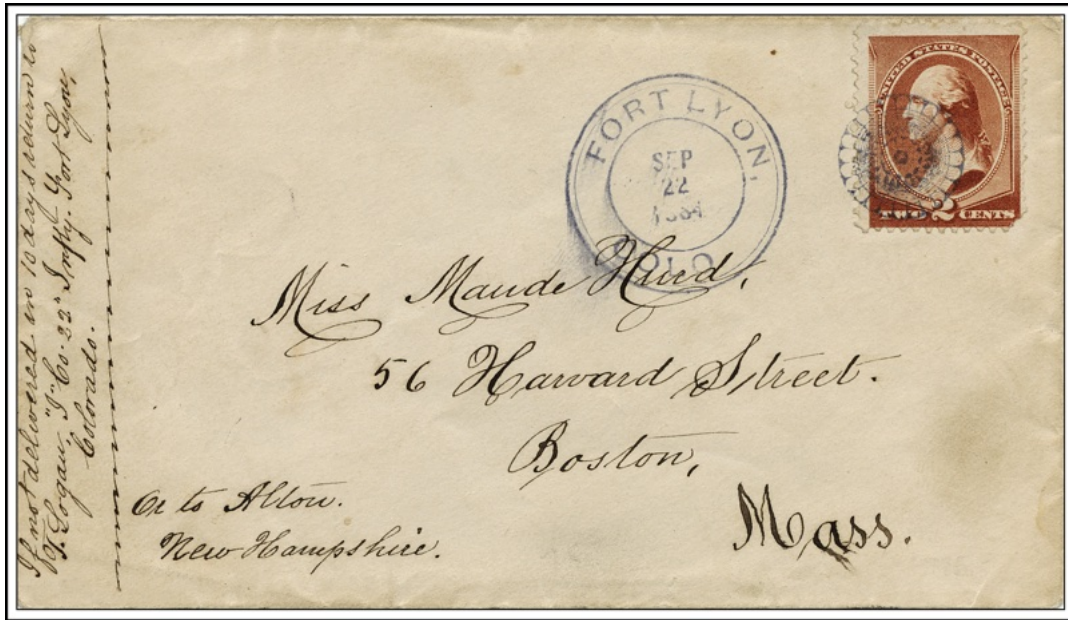 If not delivered in 10 days return to
T. Logan, "I" Co. 22d Infty. Fort Lyon,
Colorado.
FORT LYON,
SEP
22
1884
COLO.
UNITED STATES POSTAGE
TWO 2 CENTS
Miss Maude Hurd,
56 Harvard Street.
Boston,
Mass.
Or to Alton.
New Hampshire.